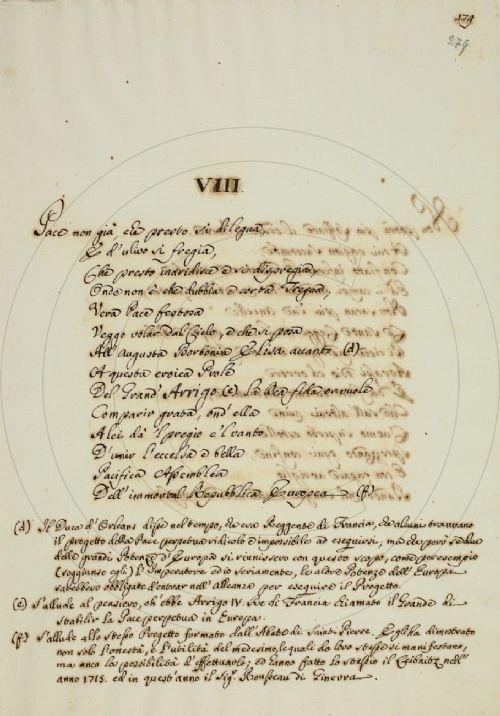 179
279
VIII
Pace non già che presto si dilegua,
E d'ulivo si fregia,
Che presto inaridisce e si dispregia,
Onde non è che dubbia e corta Tregua,
Vera Pace festosa
Veggo volar dal Cielo, e che si posa
All'Augusta Borbonia Elisa accanto (d).
A questa eroica Prole
Del Grand'Arrigo (e) la Dea fida
Comparir grata, ond'ella
A lei dà 'l pregio e 'l vanto
D'unir l'eccelsa e bella
Pacifica Assemblea
Dell'immortal Repubblica Europea (f)
(d) Il Duca d'Orleans disse nel tempo, ch'era Reggente di Francia, che alcuni trovavano
il progetto della Pace perpetua ridicolo e impossibile ad eseguirsi, ma che però se due
delle grandi Potenze d'Europa si riunissero con questo scopo, come per esempio
(soggiunse egli) l'Imperatore ed io seriamente, le altre Potenze dell'Europa
sarebbero obbligate d'entrar nell'alleanza per eseguire il Progetto.
(e) S'allude al pensiero, ch'ebbe Arrigo IV. Re di Francia chiamato il Grande di
stabilir la Pace perpetua in Europa.
(f) S'allude allo stesso Progetto formato dall'Abate di Saint-Pierre. Egli ha dimostrato
non solo l'onestà, e l'utilità del medesimo, le quali da loro stesse si manifestano,
ma anco la possibilità d'effettuarlo; ed hanno fatto lo stesso il Leibnitz nell'
anno 1715. ed in quest'anno il Sig.r Rousseau di Ginevra.